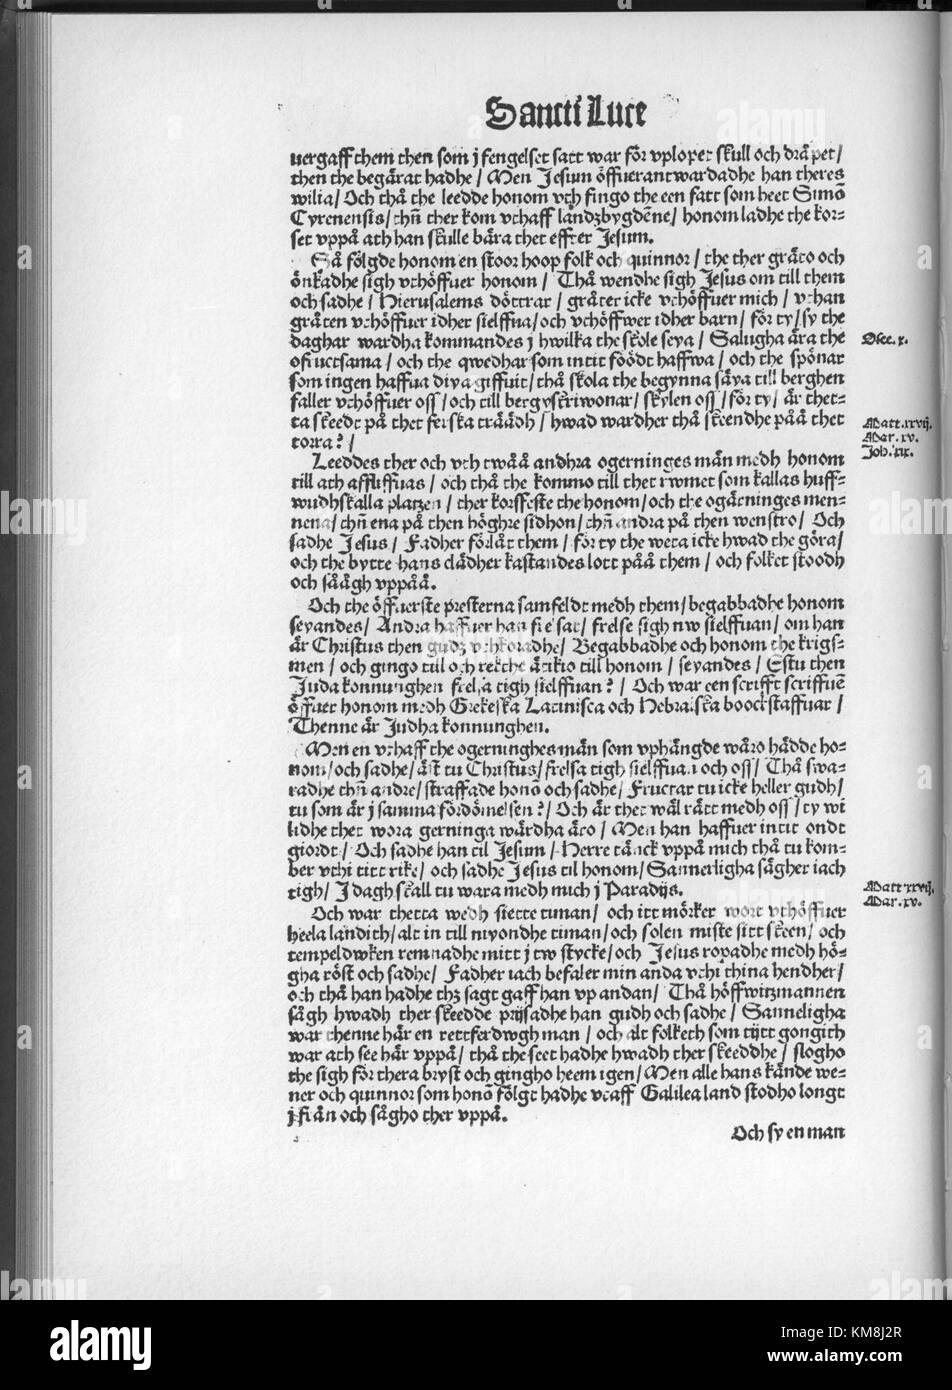 Sancti Luce
uergaff them then som j fengelset satt war för vplopet skull och dråpet/
then the begärat hadhe/ Men Jesum öffuerantwardadhe han theres
wilia/ Och thå the leedde honom vth fingo the een fatt som heet Simõ
Cyrenensis/ thñ ther kom vthaff landzbygdẽne/ honom ladhe the kor=
set vppå ath han skulle bära thet effter Jesum.
Så fölgde honom en stoor hoop folk och quinnor/ the ther gräto och
önkadhe sigh vthöffuer honom/ Thå wendhe sigh Jesus om till them
och sadhe/ Hierusalems döttrar/ gråter icke vthöffuer mich/ vthan
gråten vthöffuer idher sielffua/ och vthöffwer idher barn/ för ty/ sy the
daghar wardha kommandes j hwilka the skole seya/ Salugha ära the
ofructsama/ och the qwedhar som intit föödt haffwa/ och the spönar
som ingen haffua diya giffuit/ thå skola the begynna säya till berghen
faller vthöffuer oss/ och till bergyskriwonar/ skylen oss/ för ty/ är thet=
ta skeedt på thet ferska träädh/ hwad wardher thå skeendhe påå thet
torra?/
Osee. x.
Matt. xxvij.
Mar. xv.
Joh. xix.
Leeddes ther och vth twåå andhra ogerninges män medh honom
till ath affliffuas/ och thå the kommo till thet rwmet som kallas huff=
wudhskalla platzen/ ther korsfeste the honom/ och the ogärninges men=
nena/ thñ ena på then höghre sidhon/ thñ andra på then wenstro/ Och
sadhe Jesus/ Fadher förlåt them/ för ty the weta icke hwad the göra/
och the bytte hans clädher kastandes lott påå them/ och folket stoodh
och såågh vppåå.
Och the öffuerste presterna samfeldt medh them/ begabbadhe honom
seyandes/ Andra haffuer han frelsat/ frelse sigh nw sielffuan/ om han
är Christus then gudz vthkoradhe/ Begabbadhe och honom the krigs=
men/ och gingo till och rekthe ätikio till honom/ seyandes/ Estu then
Juda konnunghen frelsa tigh sielffuan?/ Och war een scrifft scriffuẽ
öffuer honom medh Grekeska Latinisca och Hebraiska boockstaffuar/
Thenne är Judha konnunghen.
Men en vthaff the ogerninghes män som vphängde wåro hädde ho=
nom/ och sadhe/ äst tu Christus/ frelsa tigh sielffuan och oss/ Thå swa=
radhe thñ andre/ straffade honõ och sadhe/ Fructar tu icke heller gudh/
tu som är j samma fördömelsen?/ Och är thet wäl rätt medh oss/ ty wi
lidhe thet wora gerninga wärdha äro/ Men han haffuer intit ondt
giordt/ Och sadhe han til Jesum/ Herre tänck vppå mich thå tu kom=
ber vthi titt rike/ och sadhe Jesus til honom/ Sannerligha sägher iach
tigh/ J dagh skall tu wara medh mich j Paradijs.
Matt xxvij.
Mar. xv.
Och war thetta wedh siette timan/ och itt mörker wort vthöffuer
heela landith/ alt in till niyondhe timan/ och solen miste sitt skeen/ och
tempeldwken remnadhe mitt j tw stycke/ och Jesus ropadhe medh hö=
gha röst och sadhe/ Fadher iach befaler min anda vthi thina hendher/
och thå han hadhe thz sagt gaff han vp andan/ Thå höffwitzmannen
sågh hwadh ther skeedde prijsadhe han gudh och sadhe/ Sanneligha
war thenne här en rettferdwgh man/ och alt folketh som tijtt gongith
war ath see här vppå/ thå the seet hadhe hwadh ther skeeddhe/ slogho
the sigh för thera bryst och gingho heem igen/ Men alle hans kände we=
ner och quinnor som honõ fölgt hadhe vthaff Galilea land stodho longt
j från och sågho ther vppå.
Och sy en man
alamy
Image ID: KM8J2R
www.alamy.com